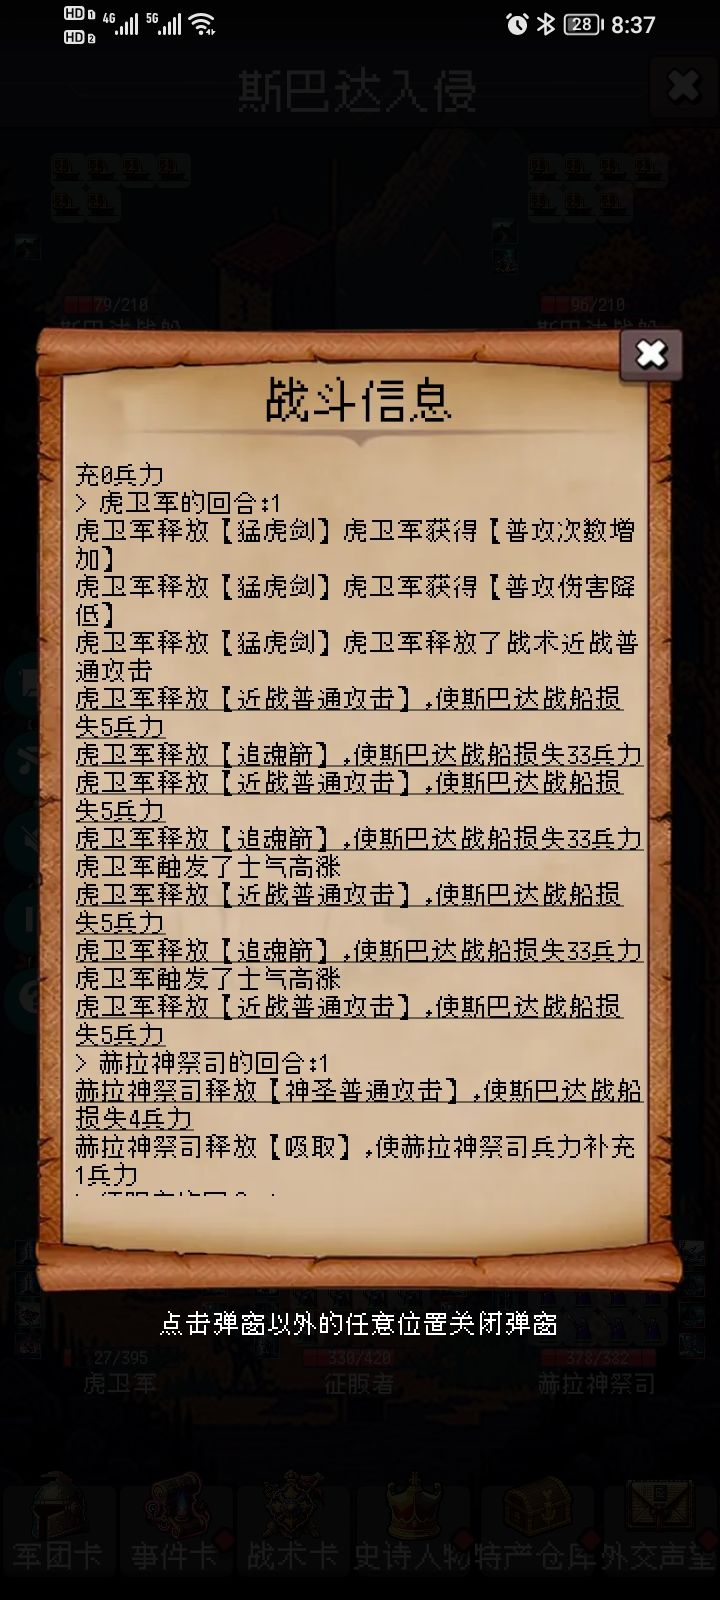 HD 1 4G 5G 28 8:37
HD 2
斯巴达入侵
79/210 96/210
斯巴达战船 斯巴达战船
战斗信息
充0兵力
> 虎卫军的回合:1
虎卫军释放【猛虎剑】虎卫军获得【普攻次数增
加】
虎卫军释放【猛虎剑】虎卫军获得【普攻伤害降
低】
虎卫军释放【猛虎剑】虎卫军释放了战术近战普
通攻击
虎卫军释放【近战普通攻击】,使斯巴达战船损
失5兵力
虎卫军释放【追魂箭】,使斯巴达战船损失33兵力
虎卫军释放【近战普通攻击】,使斯巴达战船损
失5兵力
虎卫军释放【追魂箭】,使斯巴达战船损失33兵力
虎卫军触发了士气高涨
虎卫军释放【近战普通攻击】,使斯巴达战船损
失5兵力
虎卫军释放【追魂箭】,使斯巴达战船损失33兵力
虎卫军触发了士气高涨
虎卫军释放【近战普通攻击】,使斯巴达战船损
失5兵力
> 赫拉神祭司的回合:1
赫拉神祭司释放【神圣普通攻击】,使斯巴达战船
损失4兵力
赫拉神祭司释放【吸取】,使赫拉神祭司兵力补充
1兵力
点击弹窗以外的任意位置关闭弹窗
27/395 330/420 378/382
虎卫军 征服者 赫拉神祭司
军团卡 事件卡 战术卡 史诗人物 特产仓库 外交声望